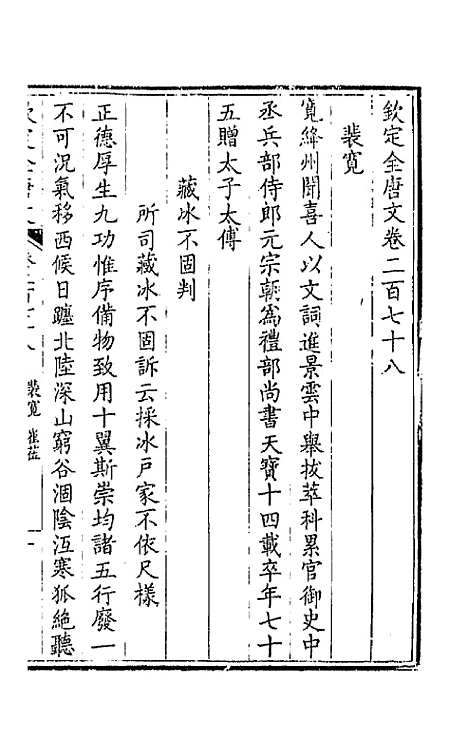 欽定全唐文卷二百七十八
裴寛
寛絳州聞喜人以文詞進景雲中舉拔萃科累官御史中
丞兵部侍郎元宗朝為禮部尚書天寶十四載卒年七十
五贈太子太傅
藏冰不固判
所司藏冰不固訴云採冰戸家不依尺様
正德厚生九功惟序備物致用十翼斯崇均諸五行廢一
不可況氣移西候日躔北陸深山窮谷涸陰沍寒狐絶聽
欽定全唐文
卷二百七十八
裴寛
崔莊
一